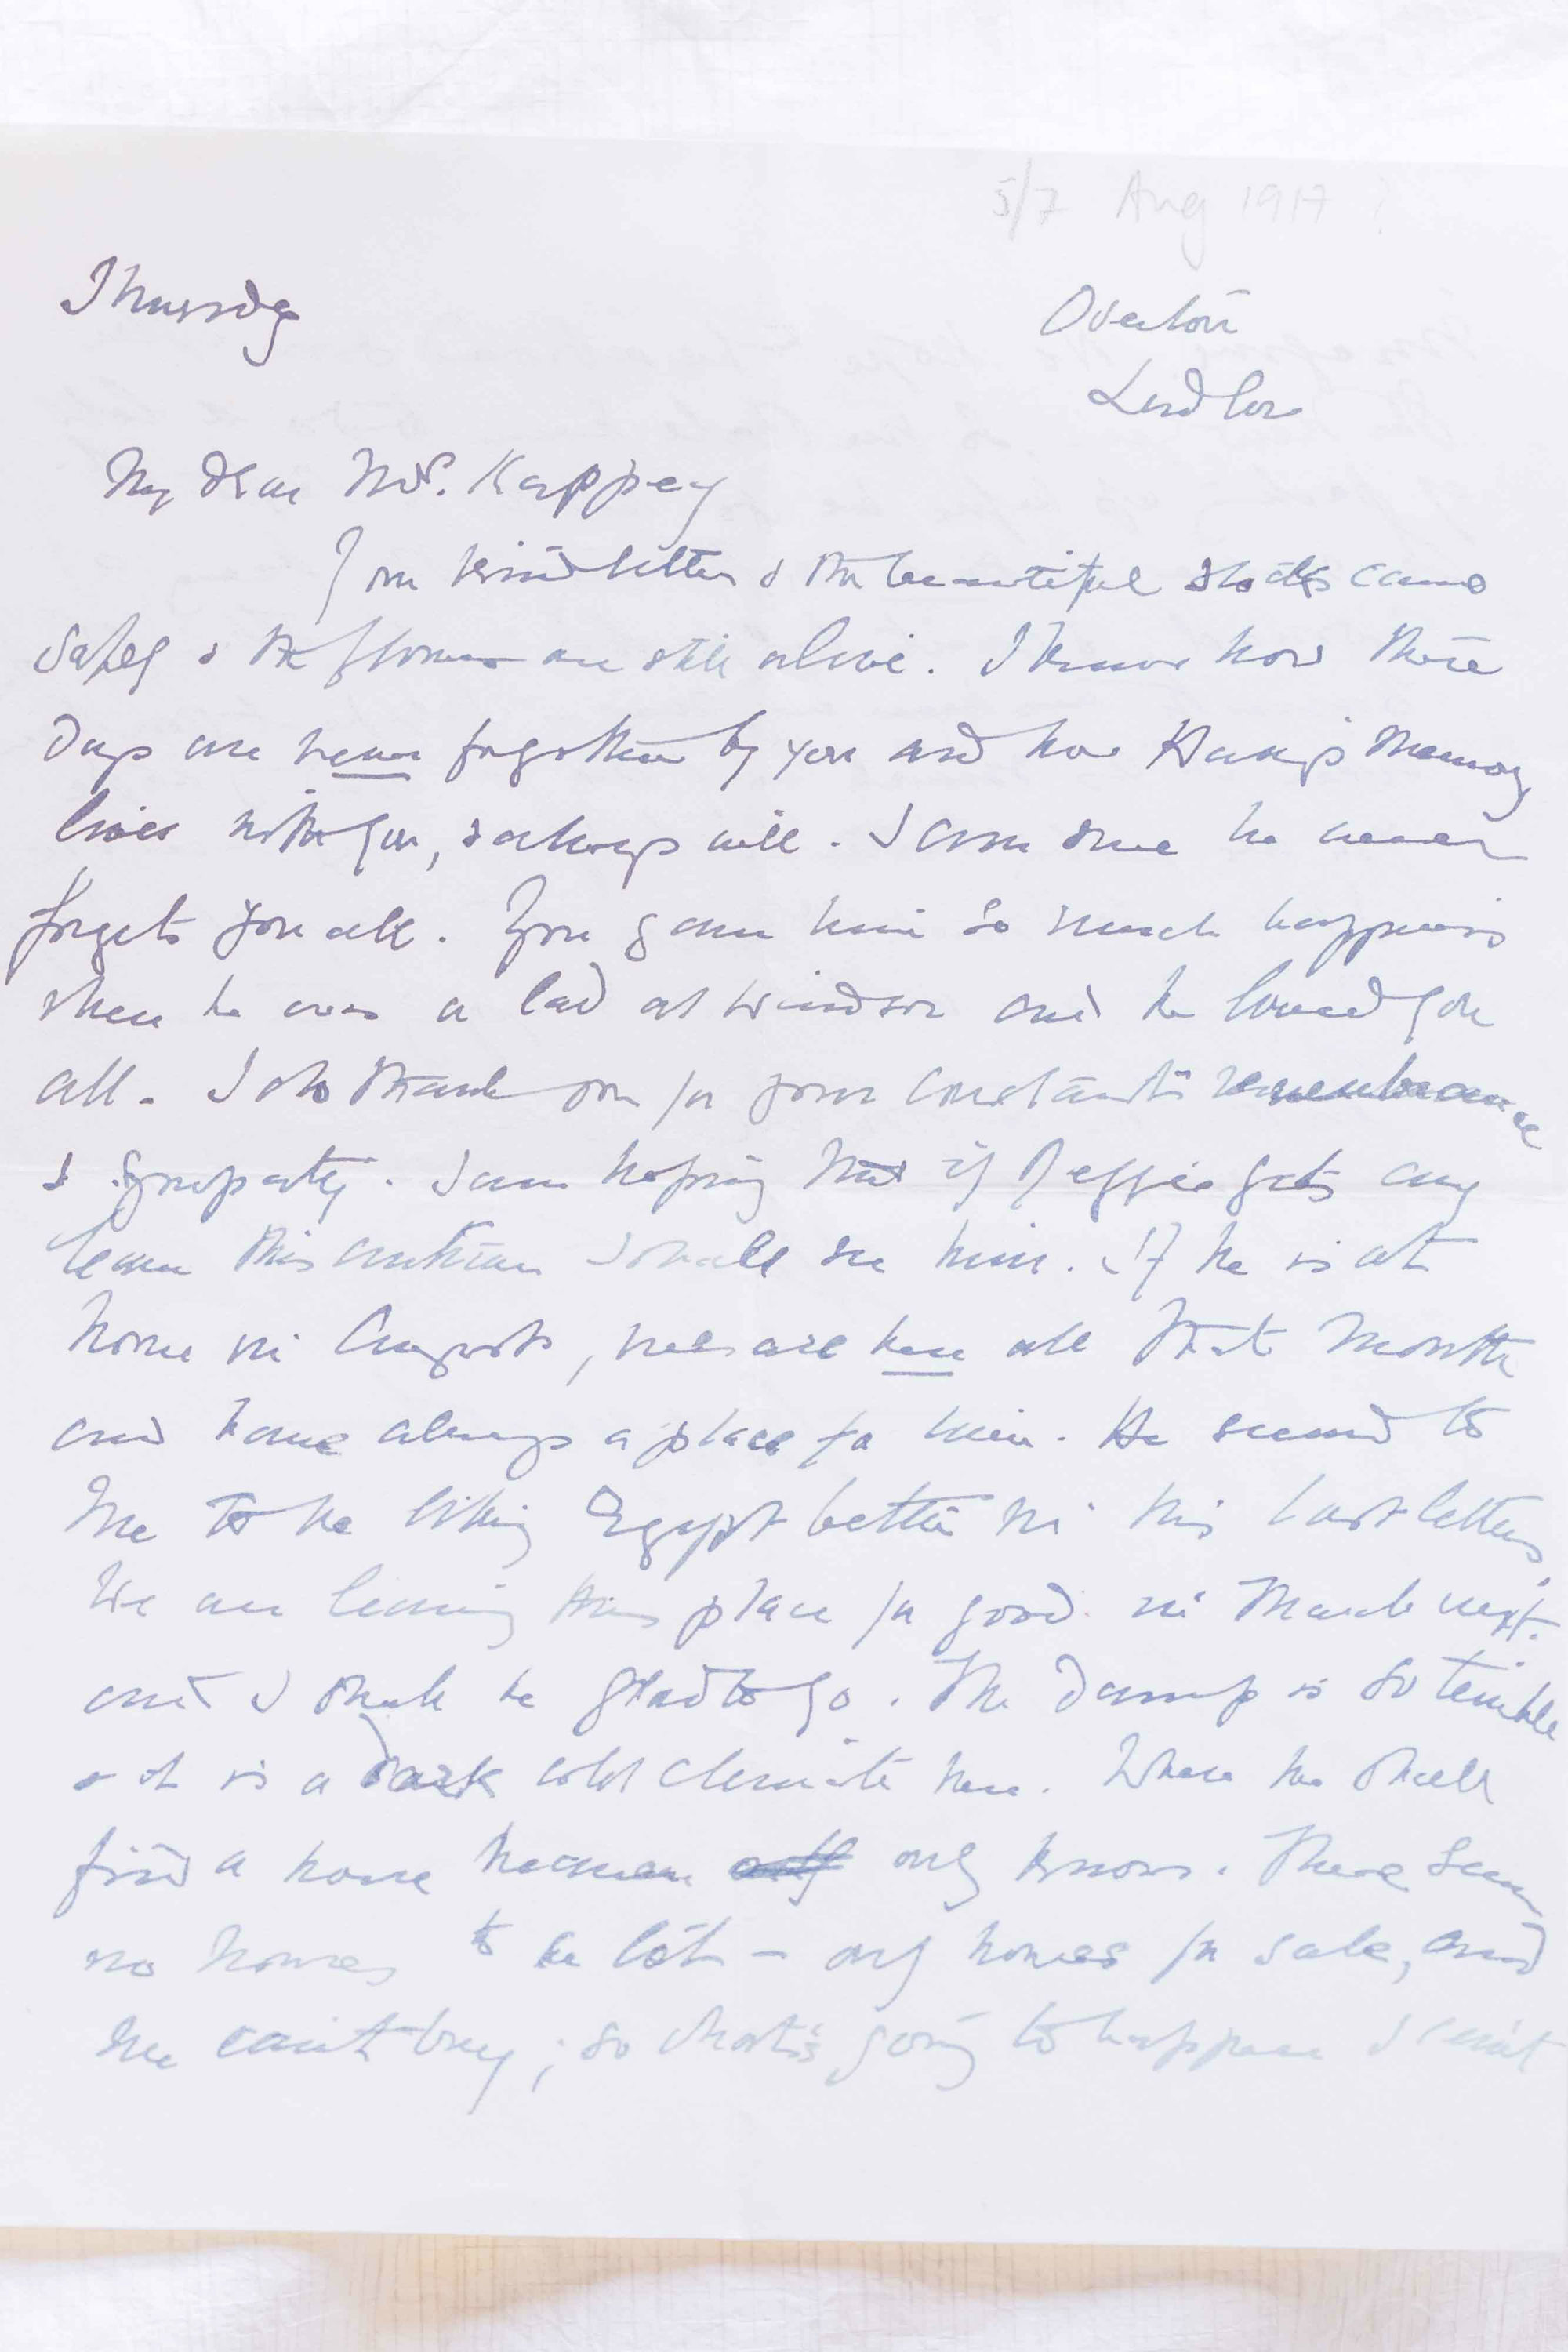 5/7 Aug 1917 ?
Thursday
Overton
Ludlow
My dear Mrs. Kappey
Your kind letter & the beautiful stocks came
safely & the flowers are still alive. I know how these
days are never forgotten by you and how Harry's memory
lives with you, & always will. I am sure he never
forgets you all. You gave him so much happiness
when he was a lad at Windsor and he loved you
all. I do thank you for your constant remembrance
& sympathy. I am hoping that if Reggie gets any
leave this autumn I shall see him. If he is at
home in August, we are here all that month
and have always a place for him. He seemed to
me to be liking Egypt better in his last letters.
We are leaving this place for good in March next.
and I shall be glad to go. The damp is so terrible
& it is a dark cold climate here. Where we shall
find a house heaven only knows. There seem
no houses to be let - only houses for sale, and
we can't buy; so what is going to happen I can't